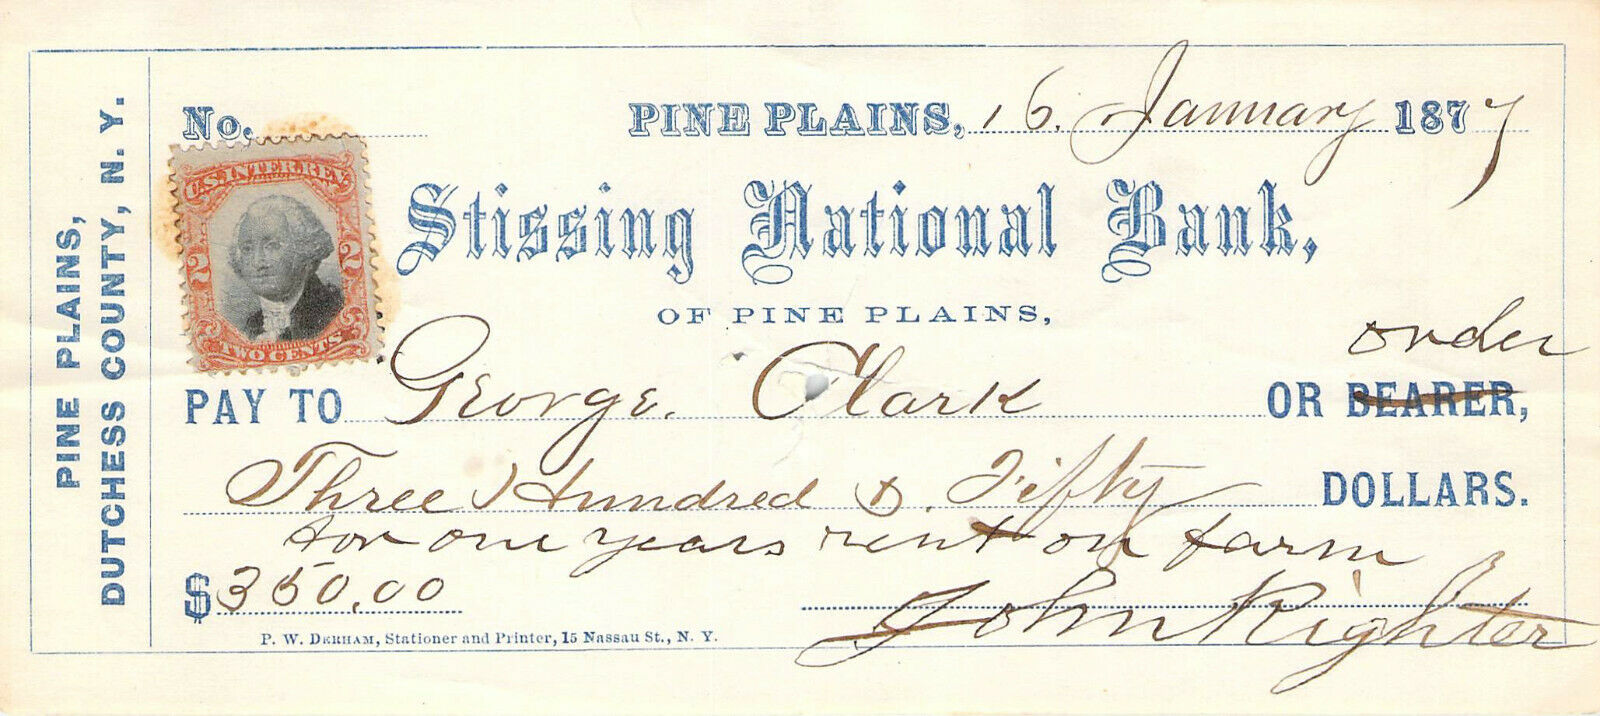 PINE PLAINS,
DUTCHESS COUNTY, N. Y.
No.
PINE PLAINS, 16. January 1877
U.S. INTER. REV.
2 2
TWO CENTS
Stissing National Bank,
OF PINE PLAINS,
order
PAY TO George. Clark OR BEARER,
Three Hundred & Fifty DOLLARS.
for one years rent on farm
$350.00
John Righter
P. W. DERHAM, Stationer and Printer, 15 Nassau St., N. Y.